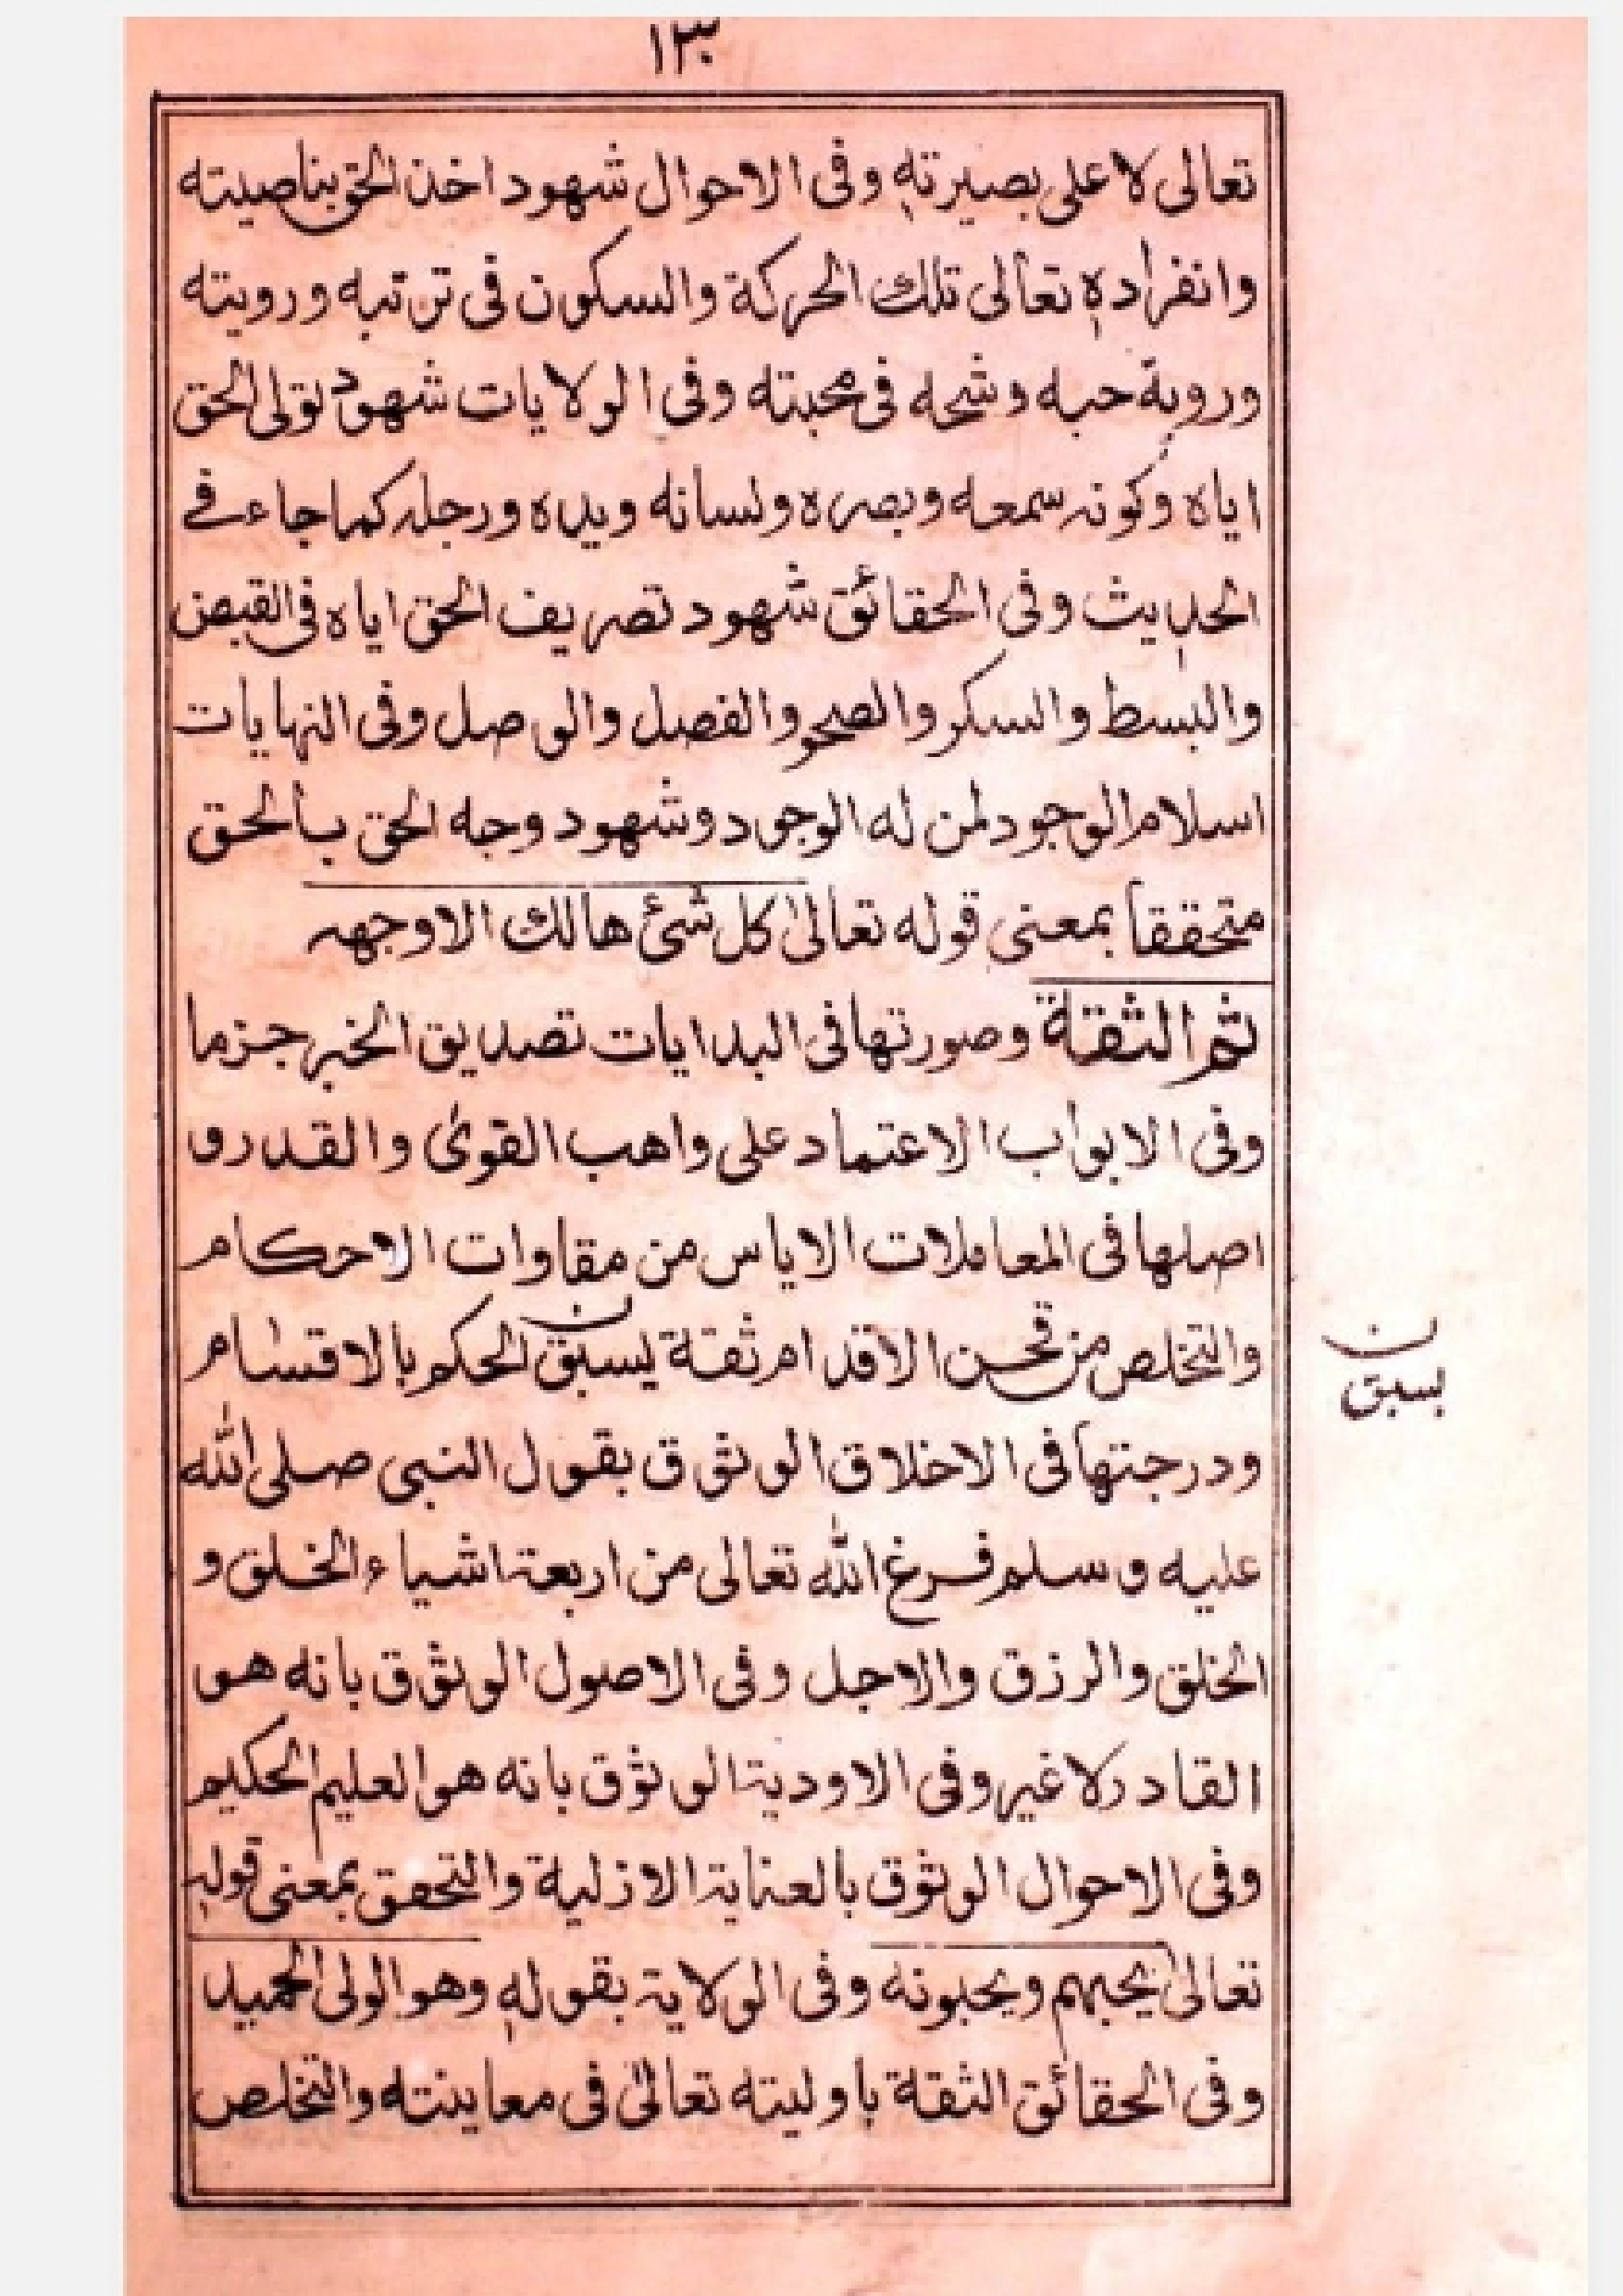 ١٣٠
تعالى لا على بصيرته وفى الاحوال شهود اخذ الحق بناصيته
وانفراده تعالى تلك الحركة والسكون فى ترتبه ورويته
وروية حبه وشحه فى محبته وفى الولايات شهود تولى الحق
اياه وكونه سمعه وبصره ولسانه ويده ورجله كما جاء فے
الحديث وفى الحقائق شهود تصريف الحق اياه فى القبض
والبسط والسكر والصحو والفصل والوصل وفى النهايات
اسلام الوجود لمن له الوجود وشهود وجه الحق بالحق
متحققا بمعنى قوله تعالىٰ كل شئ هالك الا وجهه
ثم الثقة وصورتها فى البدايات تصديق الخبر جزما
وفى الابواب الاعتماد على واهب القوىٰ والقدر و
اصلها فى المعاملات الاياس من مقاوات الاحكام
والتخلص من قحن الاقدام ثقة يسبق الحكم بالاقسام
ن
بسبق
ودرجتها فى الاخلاق الوثوق بقول النبى صلى الله
عليه وسلم فرغ الله تعالى من اربعة اشياء الخلق و
الخلق والرزق والاجل وفى الاصول الوثوق بانه هو
القادر لا غير وفى الاودية الوثوق بانه هو العليم الحكيم
وفى الاحوال الوثوق بالعناية الازلية والتحقق بمعنى قوله
تعالىٰ يحبهم ويحبونه وفى الولاية بقوله وهو الولى الحميد
وفى الحقائق الثقة باوليته تعالىٰ فى معاينته والتخلص